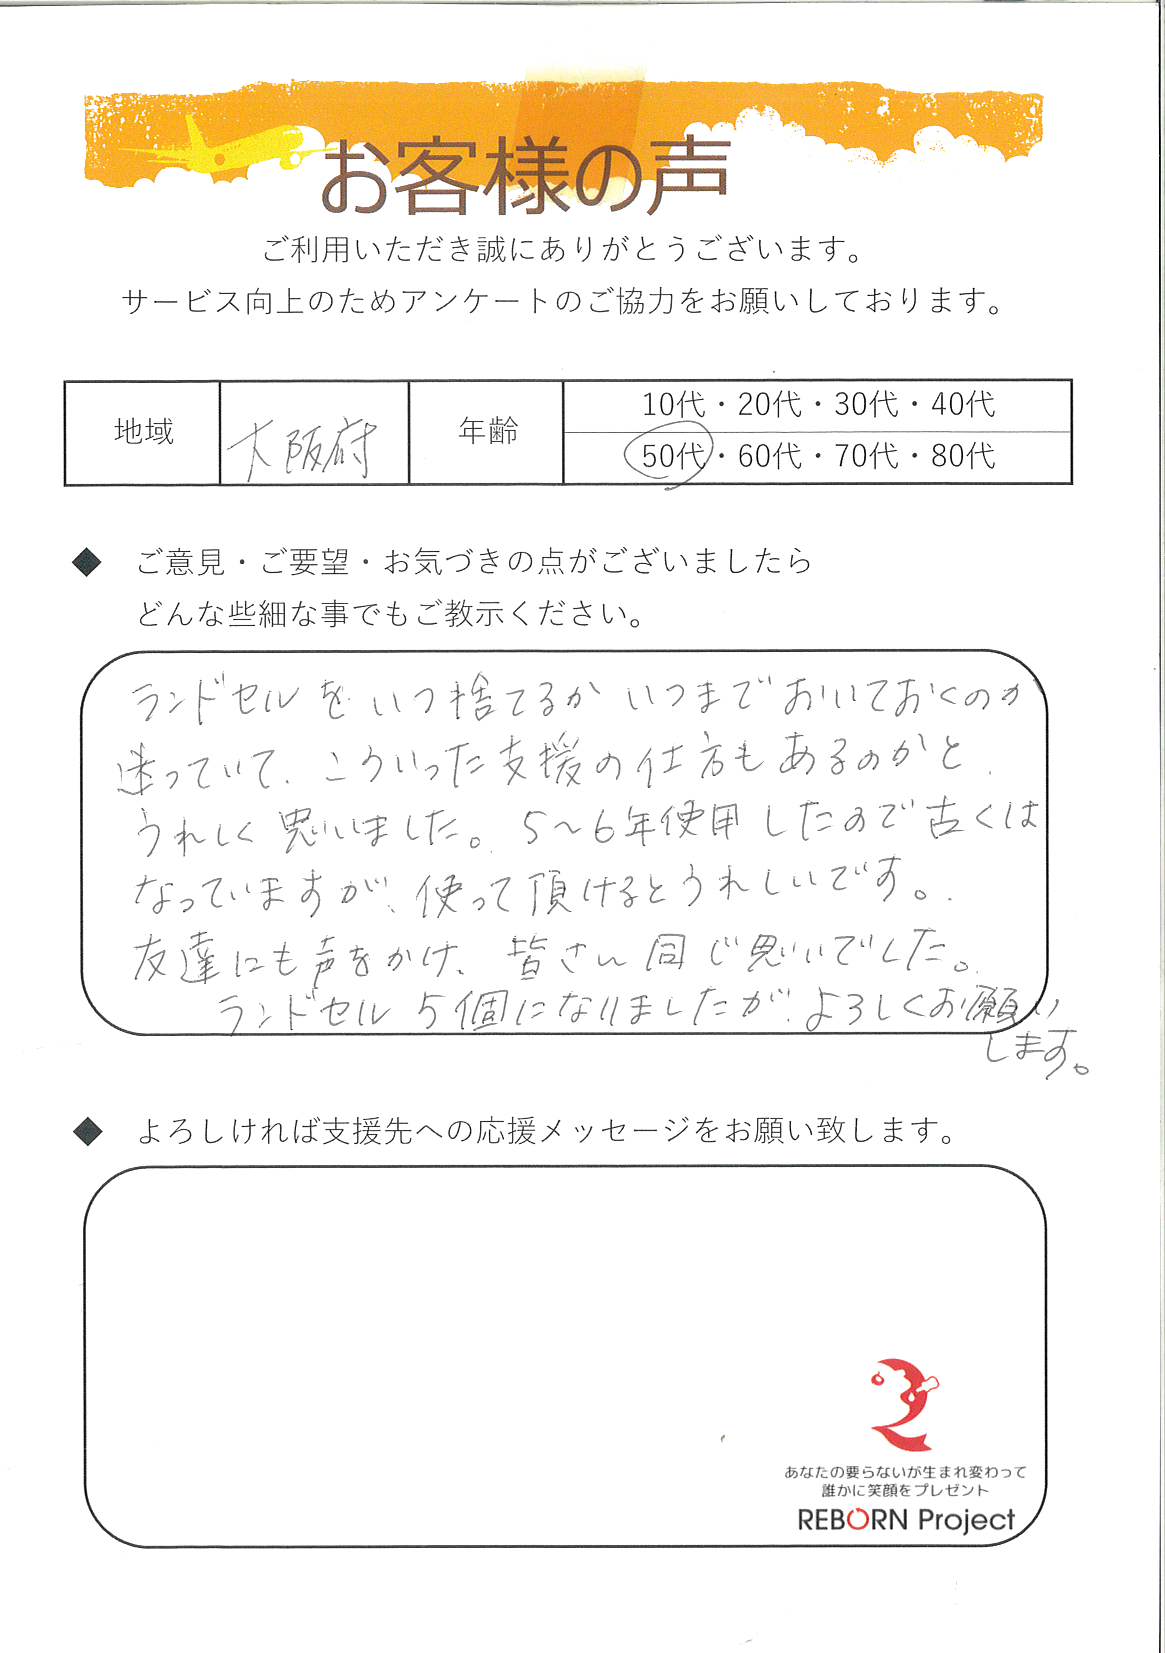 お客様の声
ご利用いただき誠にありがとうございます。
サービス向上のためアンケートのご協力をお願いしております。
地域 大阪府 年齢 10代・20代・30代・40代
50代・60代・70代・80代
◆ ご意見・ご要望・お気づきの点がございましたら
どんな些細な事でもご教示ください。
ランドセルを いつ捨てるか いつまでおいておくのか
迷っていて、こういった支援の仕方もあるのかと
うれしく思いました。5〜6年使用したので古くは
なっていますが、使って頂けるとうれしいです。
友達にも声をかけ、皆さん同じ思いでした。
ランドセル 5個になりましたが、よろしくお願い
します。
◆ よろしければ支援先への応援メッセージをお願い致します。
あなたの要らないが生まれ変わって
誰かに笑顔をプレゼント
REBORN Project